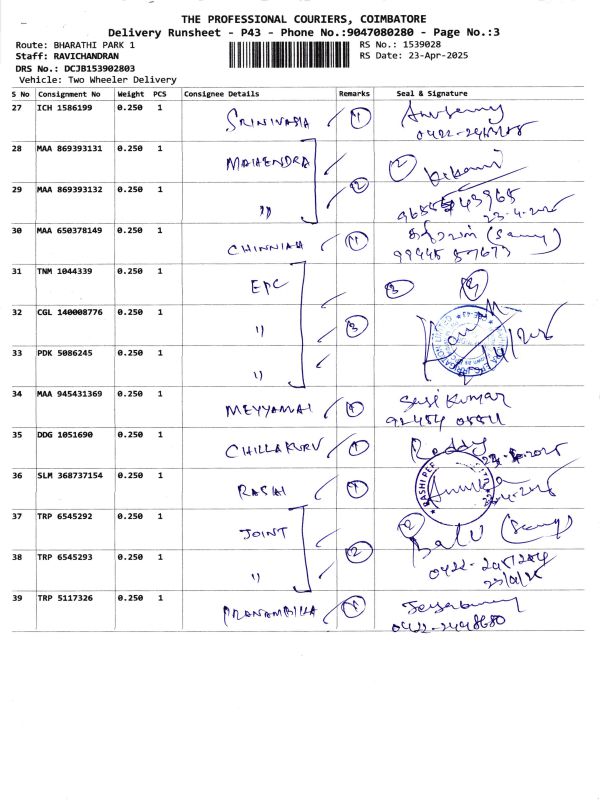 THE PROFESSIONAL COURIERS, COIMBATORE
Delivery Runsheet - P43 - Phone No.:9047080280 - Page No.:3
Route: BHARATHI PARK 1
RS No.: 1539028
Staff: RAVICHANDRAN
RS Date: 23-Apr-2025
DRS No.: DCJB153902803
Vehicle: Two Wheeler Delivery
S No Consignment No Weight PCS Consignee Details Remarks Seal & Signature
27 ICH 1586199 0.250 1 SRINIVASA 1
28 MAA 869393131 0.250 1 MAHENDRA 2
29 MAA 869393132 0.250 1 " 2
23-4-2025
30 MAA 650378149 0.250 1 CHINNIAH 1 (Samy)
31 TNM 1044339 0.250 1 EPC 3
32 CGL 140008776 0.250 1 " 3
33 PDK 5086245 0.250 1 "
34 MAA 945431369 0.250 1 MEYYAMAI 1 Sasi Kumar
35 DDG 1051690 0.250 1 CHILLAKURU 1 Reddy
36 SLM 368737154 0.250 1 RASHI 1
37 TRP 6545292 0.250 1 JOINT 2 Balu
38 TRP 6545293 0.250 1 " 2
39 TRP 5117326 0.250 1 PRANAMBIKA 1
0422-2448680